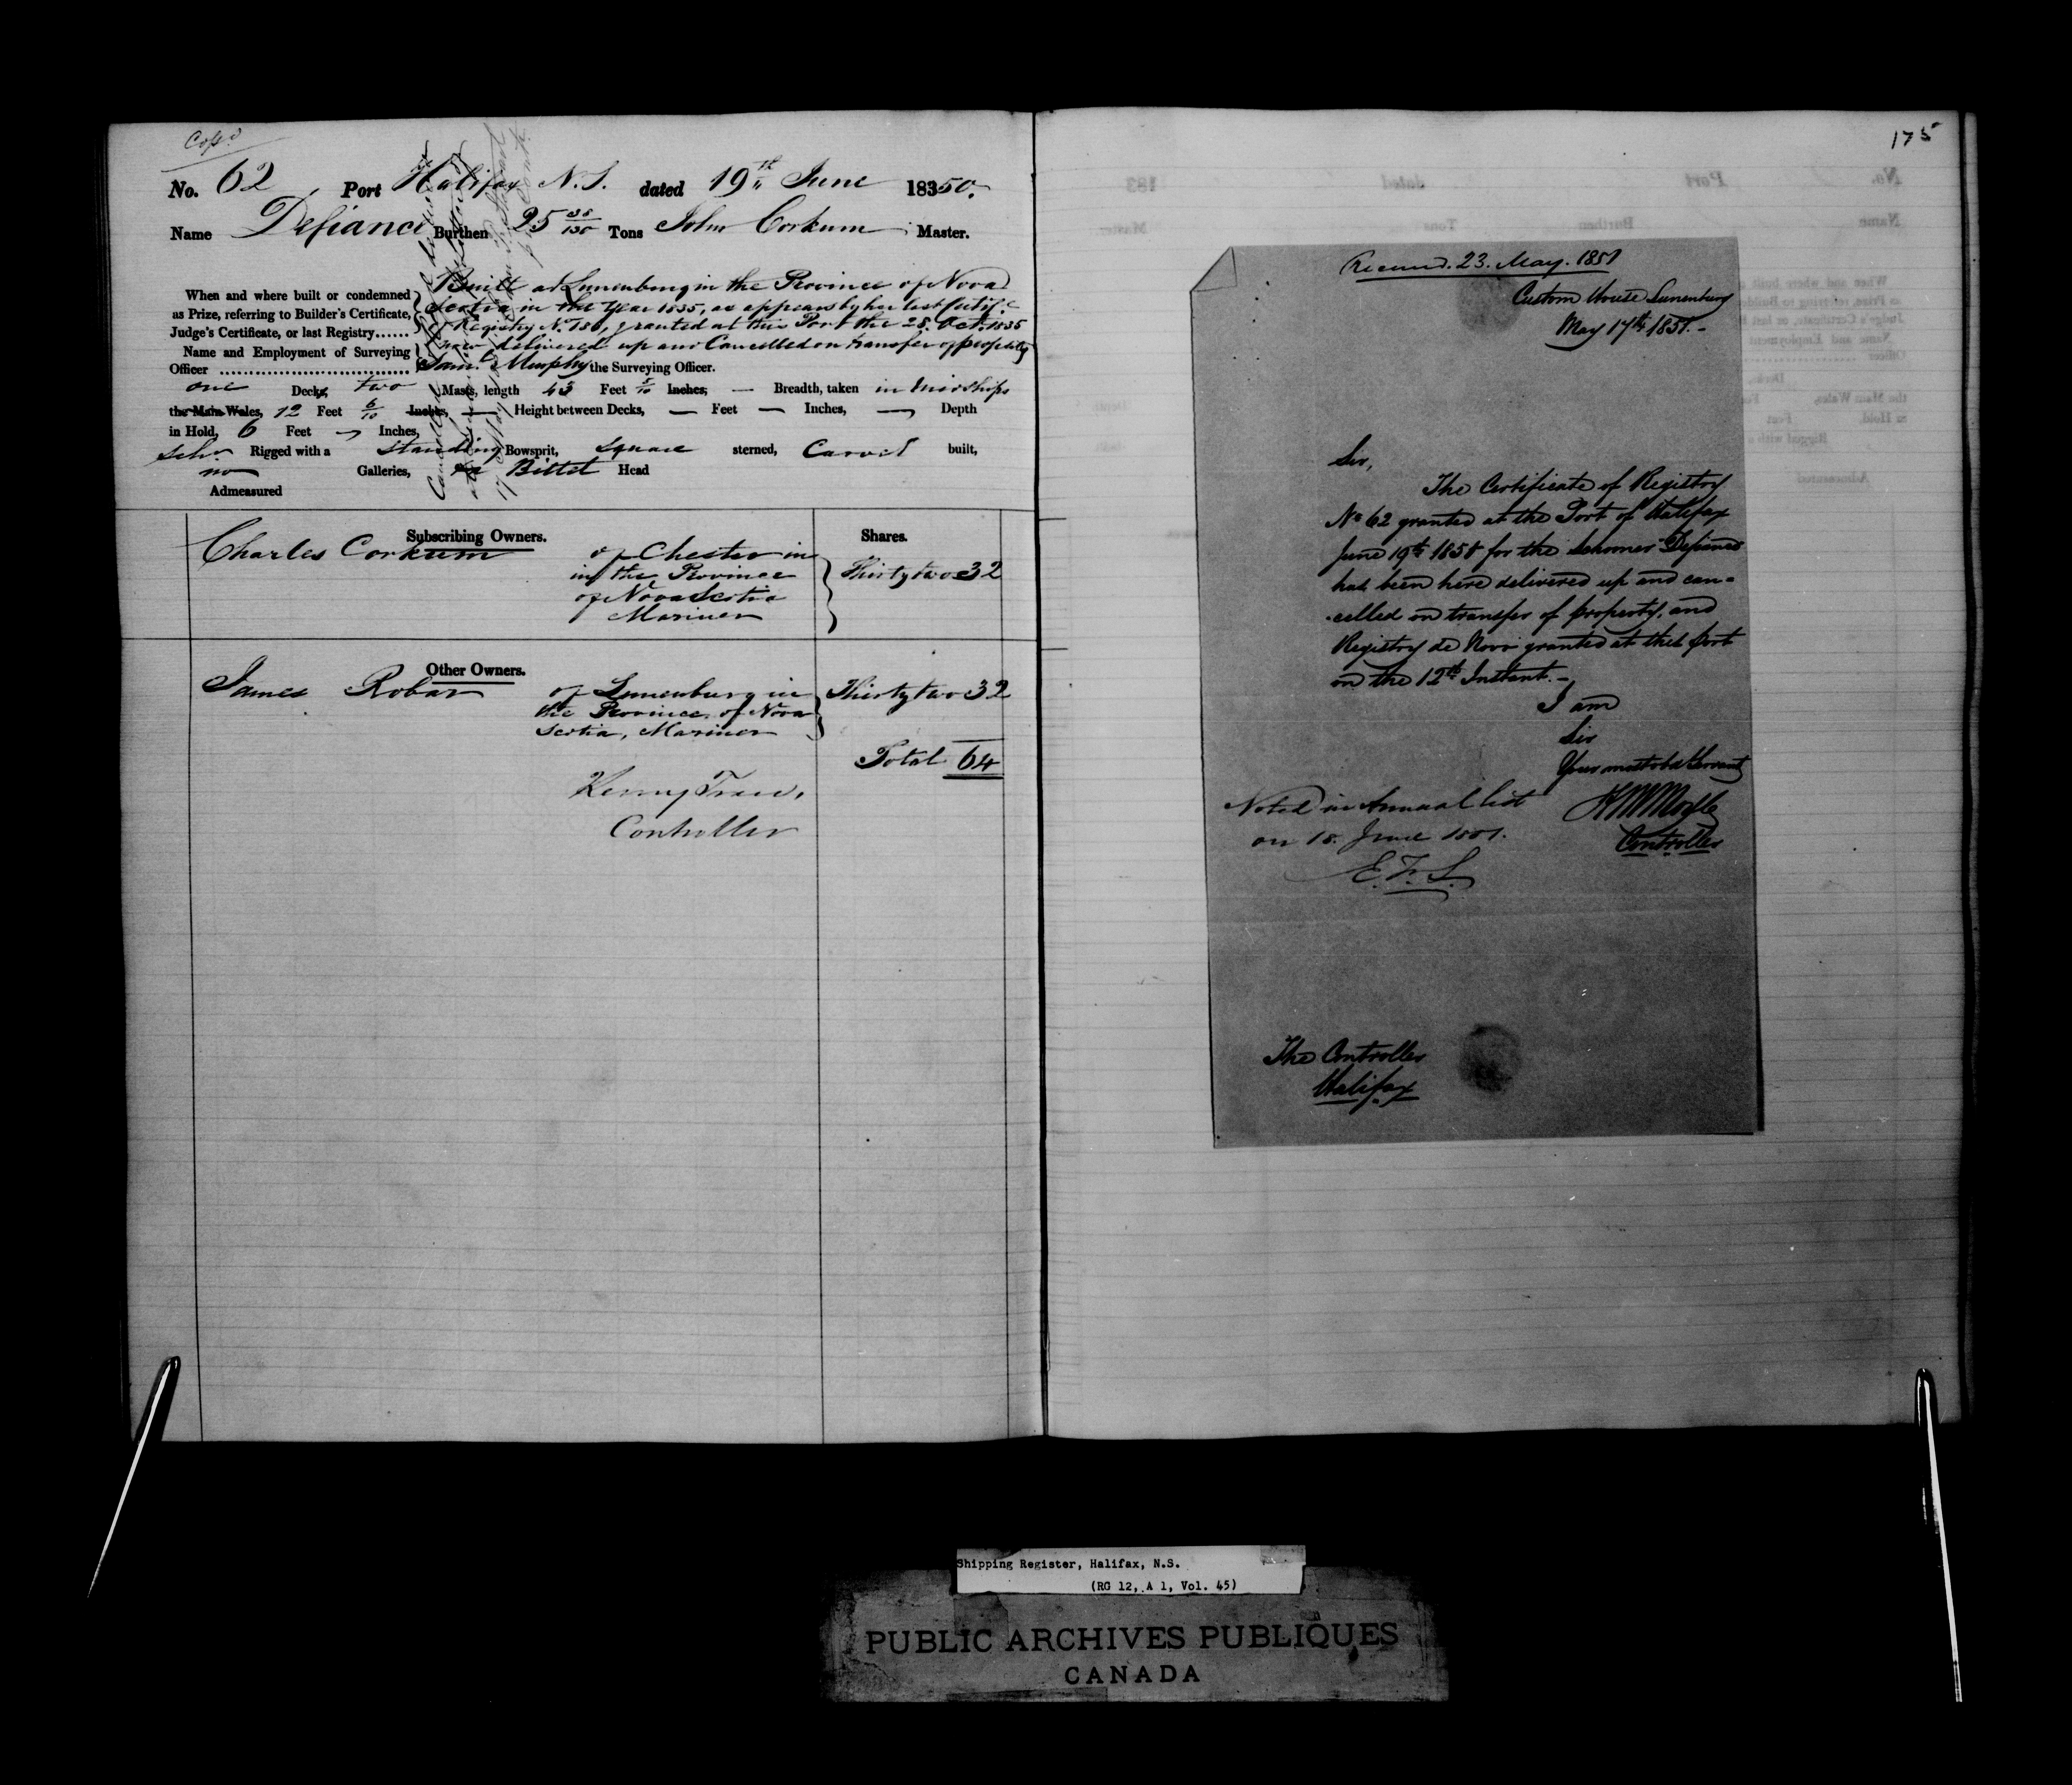 Copd
No. 62 Port Halifax N.S. dated 19th June 18350.
Name Defiance Burthen 25 38/130 Tons John Corkum Master.
When and where built or condemned
as Prize, referring to Builder's Certificate,
Judge's Certificate, or last Registry......
Built at Lunenburg in the Province of Nova
Scotia in the Year 1835, as appears by her last Certif.
of Registry No. 180, granted at this Port the 28. Oct. 1835
now delivered up and Cancelled on transfer of property
Name and Employment of Surveying
Officer ................................ Saml. Murphy the Surveying Officer.
one Decks, two Masts, length 43 Feet Inches, — Breadth, taken in midships
the Main Wales, 12 Feet 6/10 Inches, — Height between Decks, — Feet — Inches, — Depth
in Hold, 6 Feet — Inches,
Schr. Rigged with a standing Bowsprit, square sterned, Carvel built,
no Galleries, Billet Head
Admeasured
Subscribing Owners. Shares.
Charles Corkum of Chester in
in the Province
of Nova Scotia
Mariner
Thirty two 32
Other Owners.
James Robar of Lunenburg in
the Province of Nova
Scotia, Mariner
Thirty two 32
Total 64
Controller
175
Received. 23. May. 1851
Custom House Lunenburg
May 17th 1851.-
Sir,
The Certificate of Registry
No 62 granted at the Port of Halifax
June 19th 1850 for the Schooner Defiance
has been here delivered up and can=
celled on transfer of property, and
Registry de Novo granted at this port
on the 12th Instant.-
I am
Sir
Your most obd Servant
Controller
Noted in Annual list
on 18. June 1851.
E.F.S.
The Controller
Halifax
Shipping Register, Halifax, N.S.
(RG 12, A 1, Vol. 45)
PUBLIC ARCHIVES PUBLIQUES
CANADA